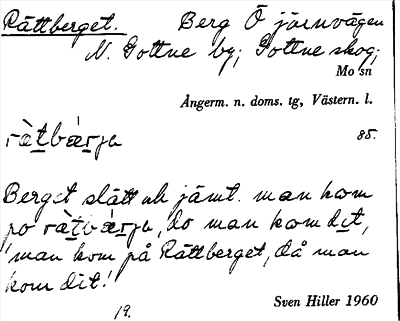 Rättberget. Berg Ö järnvägen
N. Gottne by; Gottne skog;
Mo sn
Ångerm. n. doms. tg, Västern. l.
85.
Berget slätt uh jämt. man kom
po , do man kom dit,
'man kom på Rättberget, då man
kom dit.'
19. Sven Hiller 1960